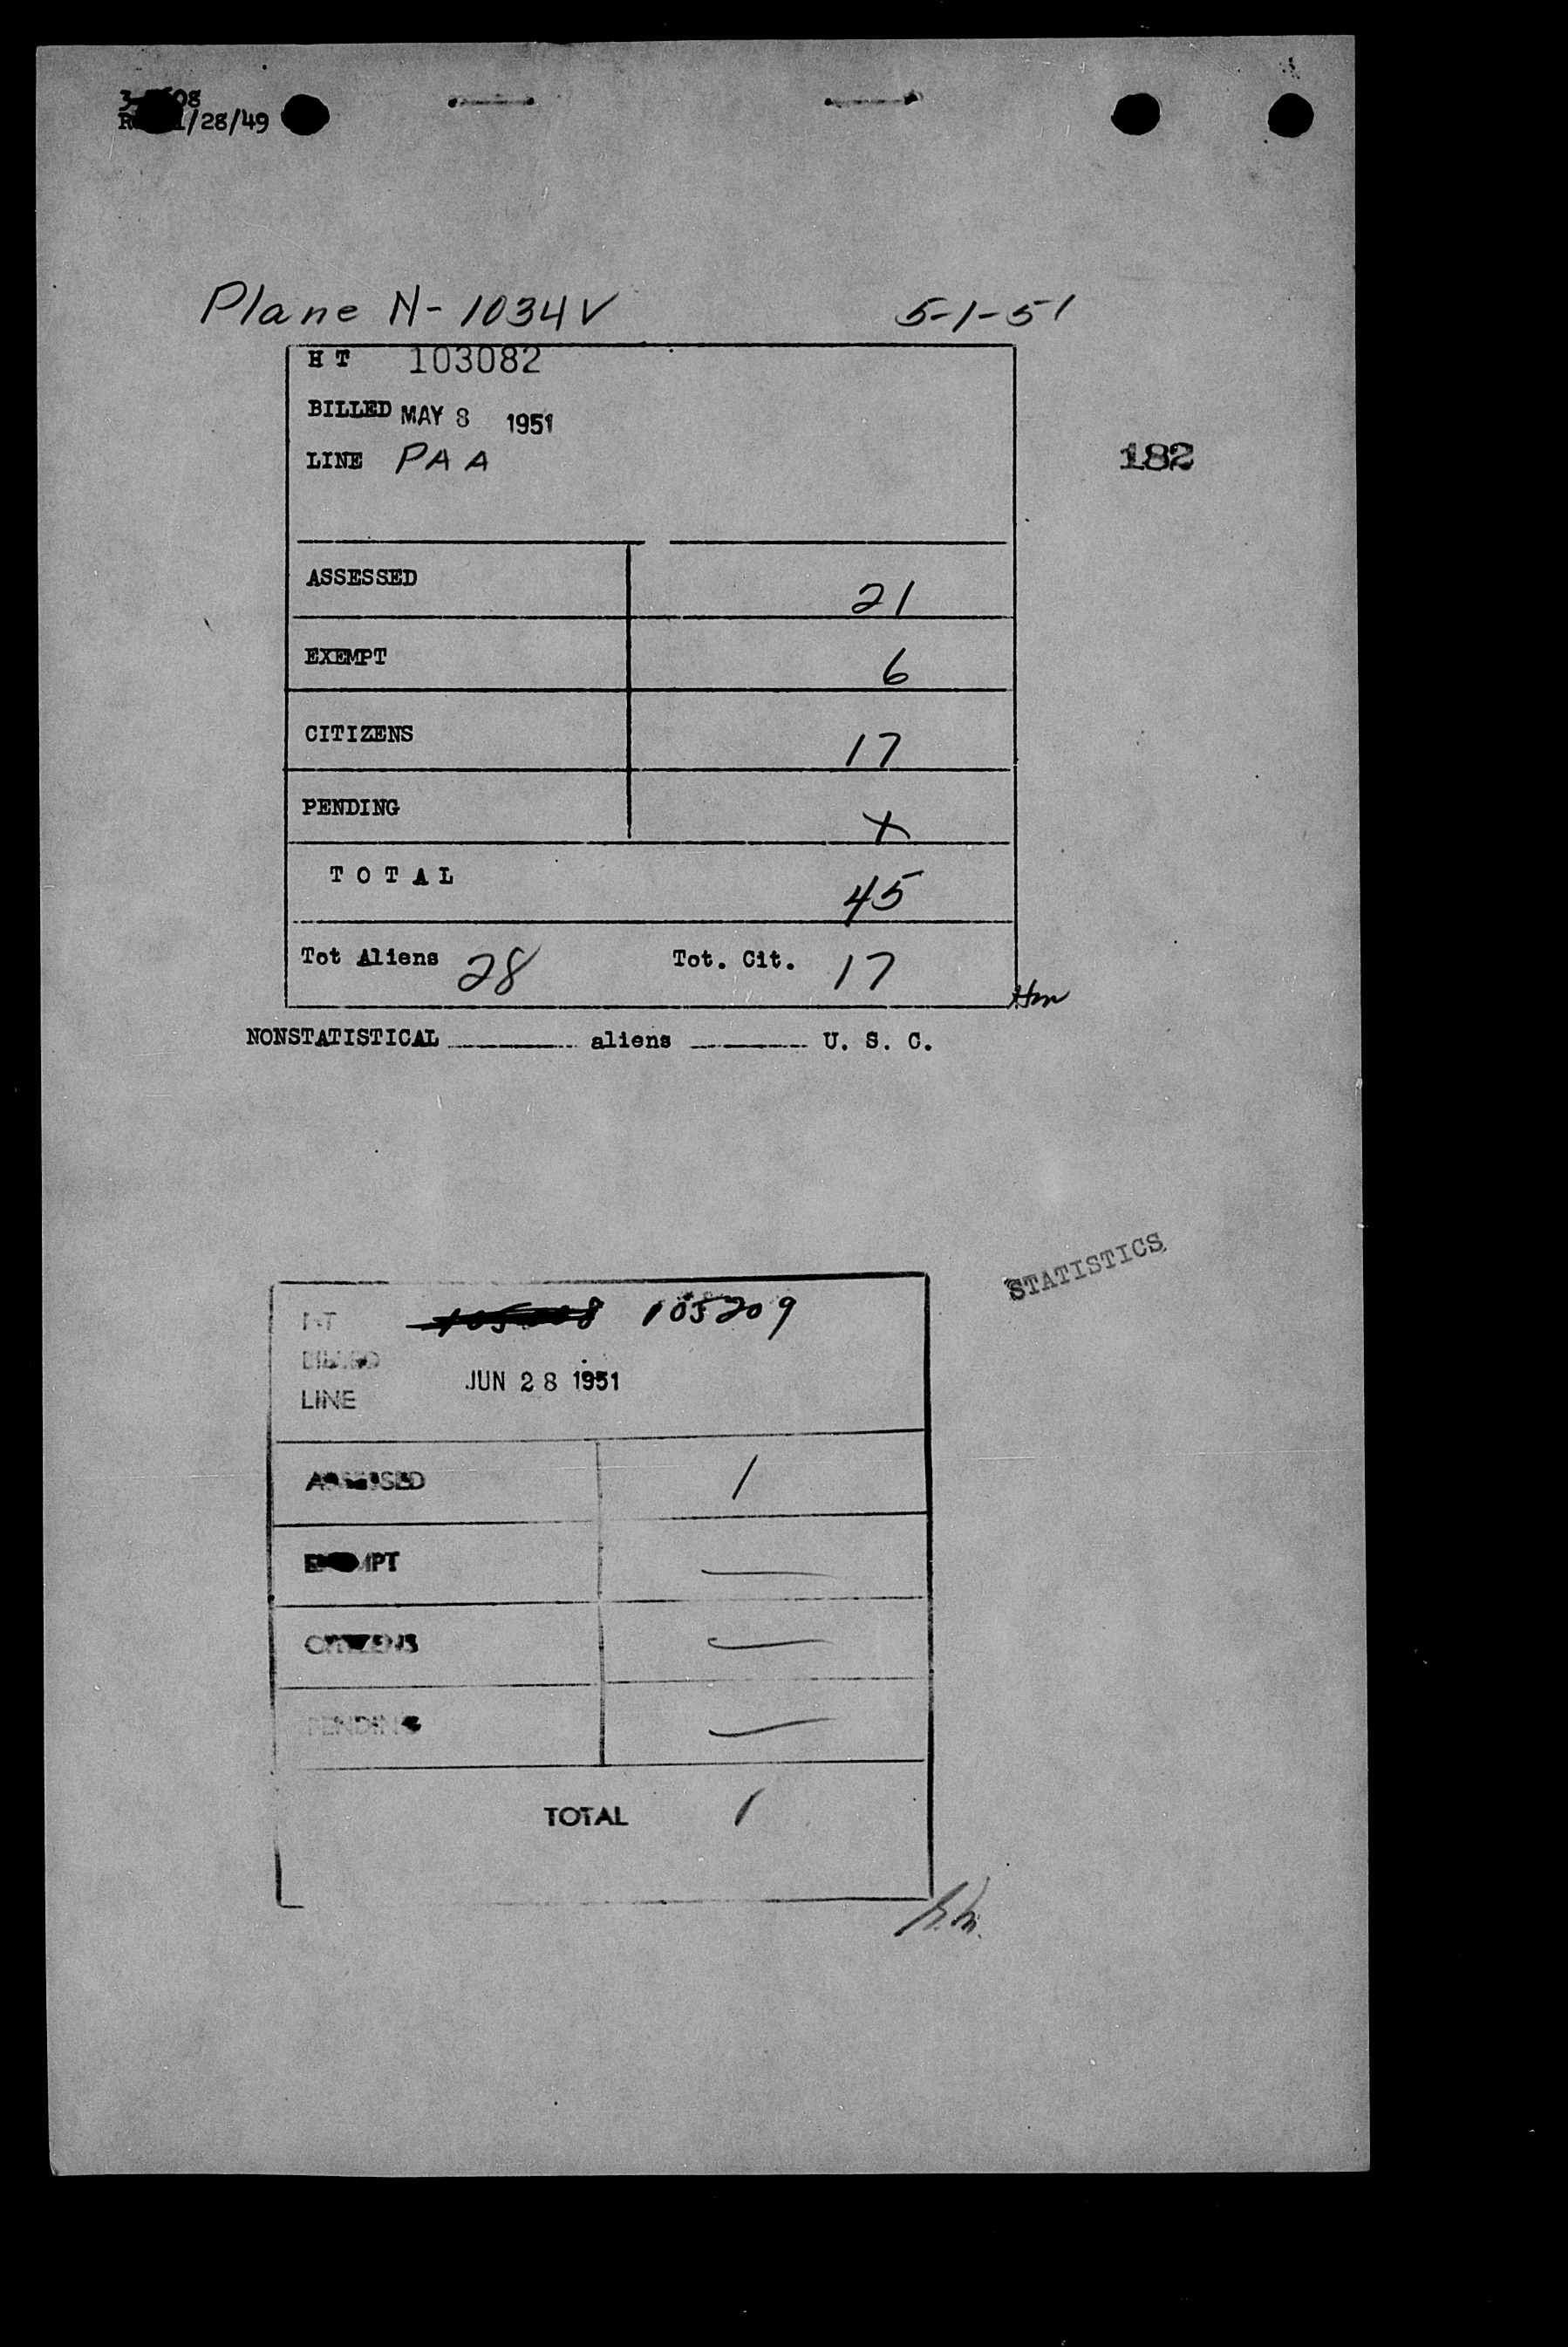 /28/49
Plane N-1034V 5-1-51
HT 103082
BILLED MAY 8 1951
LINE PAA
182
ASSESSED 21
EXEMPT 6
CITIZENS 17
PENDING X
TOTAL 45
Tot Aliens 28 Tot. Cit. 17
NONSTATISTICAL aliens U. S. C.
STATISTICS
HT 105209
BILLED JUN 28 1951
LINE
ASSESSED 1
EXEMPT —
CITIZENS —
PENDING —
TOTAL 1